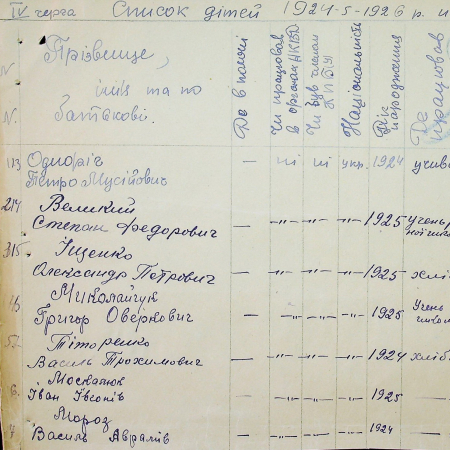 IV черга Список дітей 1924-5-1926 р.
N N. Прізвище, імя та по батькові. Де в полоні Чи працював в органах НКВД Чи був членом КП(б)У Національність Рік народження Де працював
1 Одноріг Петро Мусійович — ні ні укр. 1924
2 Великий Степан Федорович — -"- -"- -"- 1925 учень
3 Іщенко Олександр Петрович — -"- -"- -"- 1925
Миколайчук Григор Оверкович — -"- -"- -"- 1925 Учень
5 Тіторенко Василь Трохимович — -"- -"- -"- 1924
6. Москалюк Іван Івсонів — -"- -"- -"- 1925 —
7 Мороз Василь Авралів — -"- -"- -"- 1924 —